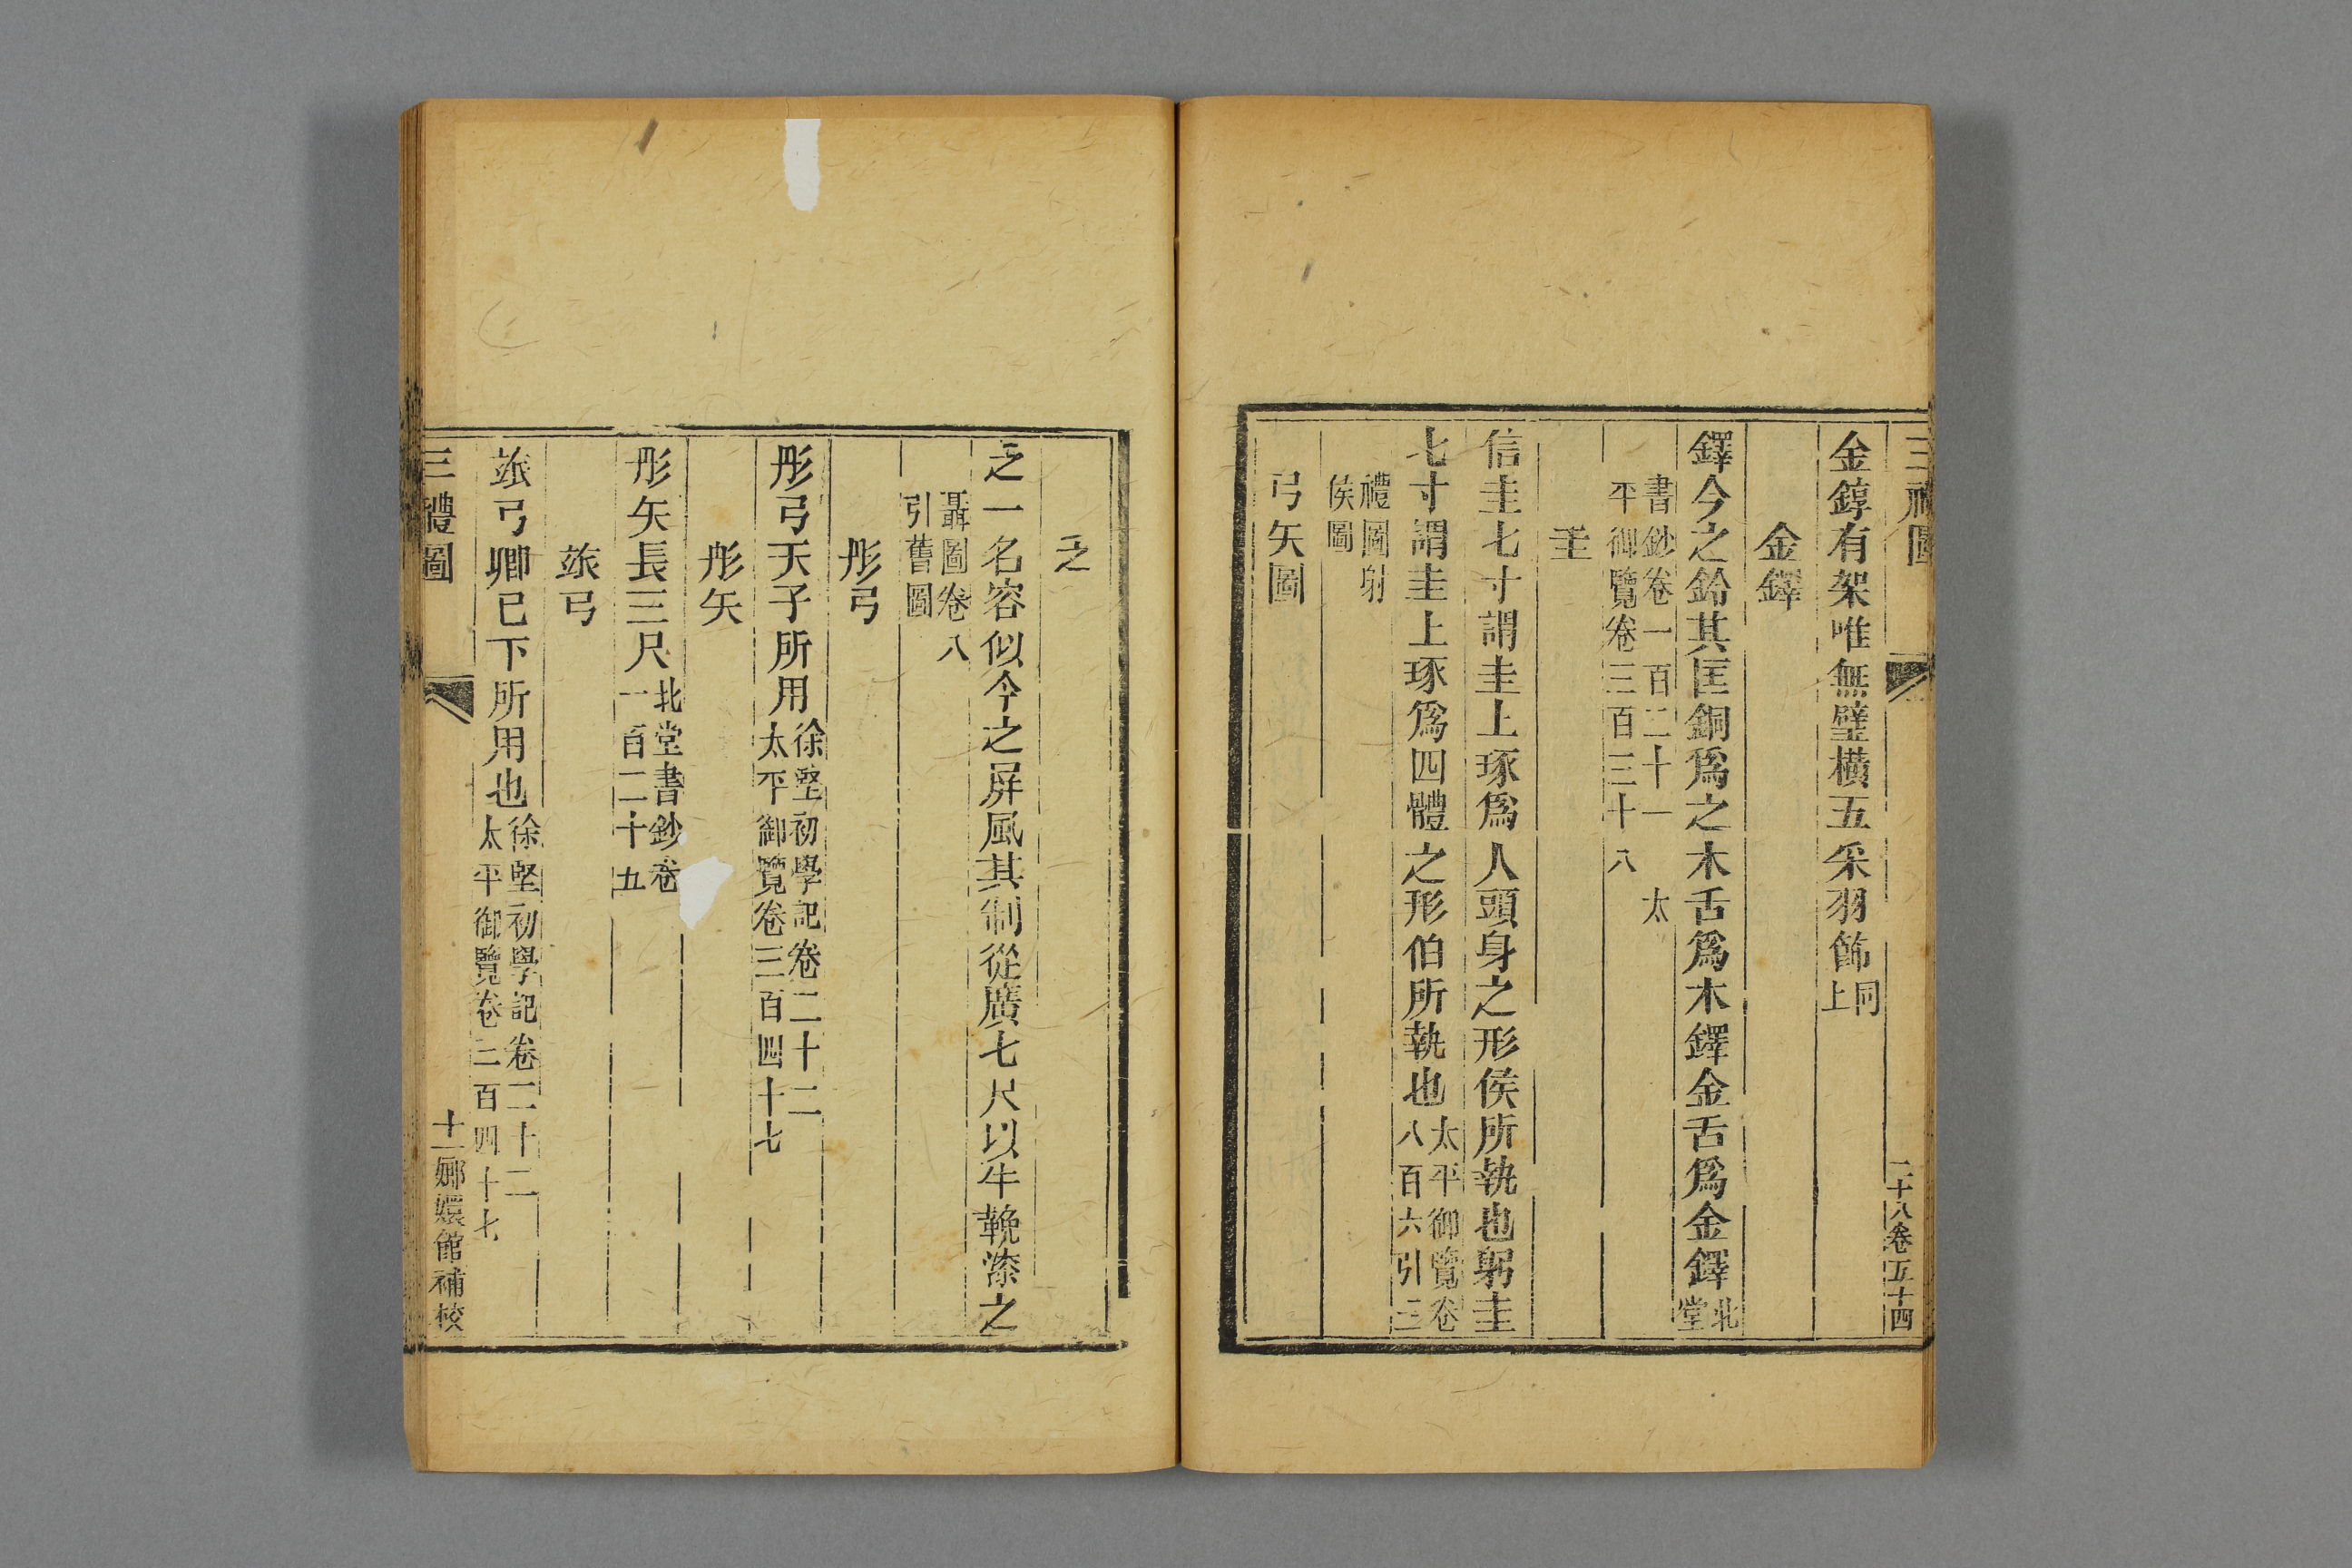 三禮圖 二十八卷五十四
金錞有架唯無璧橫五采羽飾同上
金鐸
鐸今之鈴其匡銅爲之木舌爲木鐸金舌爲金鐸北堂
書鈔卷一百二十一 太
平御覽卷三百三十八
圭
信圭七寸謂圭上琢爲人頭身之形侯所執也躬圭
七寸謂圭上琢爲四體之形伯所執也太平御覽卷八百六引三
禮圖射
侯圖
弓矢圖
乏
乏一名容似今之屏風其制從廣七尺以牛鞔漆之
聶圖卷八
引舊圖
彤弓
彤弓天子所用徐堅初學記卷二十二太平御覽卷三百四十七
彤矢
彤矢長三尺北堂書鈔卷一百二十五
玈弓
玈弓卿已下所用也徐堅初學記卷二十二太平御覽卷三百四十七
三禮圖 十一嫏嬛館補校